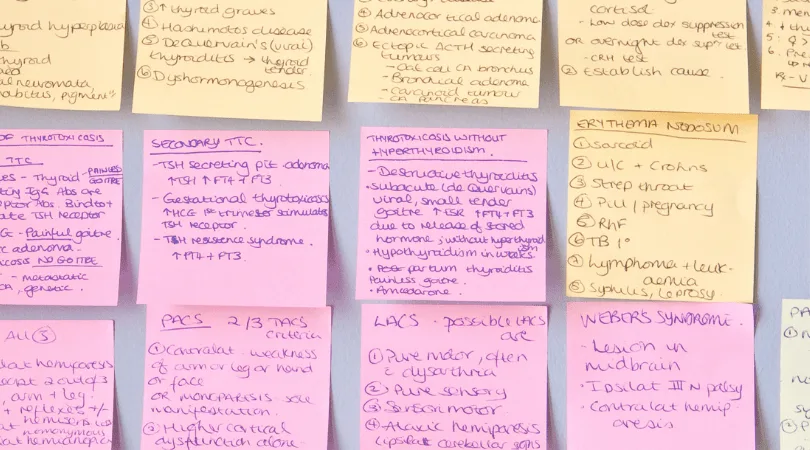 thyroid hyperplasia
thyroid
③ ↑ thyroid graves
④ Hashimotos disease
⑤ Dequervain's (viral)
thyroiditis → thyroid
tender
⑥ Dyshormonogenesis
④ Adrenocortical adenoma
⑤ Adrenocortical carcinoma
⑥ Ectopic ACTH secreting
tumours
- Oat cell CA bronchus
- Bronchial adenoma
- carcinoid tumour
- CA pancreas
cortisol
- Low dose dex suppression
test
OR overnight dex supp test
- CRH test
② Establish cause
OF THYROTOXICOSIS
TTC
- Thyroid - PAINLESS
GOITRE
IgG Abs are
Abs. Bind to +
TSH receptor
- Painful goitre.
adenoma -
NO GOITRE
- metastatic
genetic.
SECONDARY TTC.
- TSH secreting pit adenoma
↑TSH ↑FT4 + FT3.
- Gestational thyrotoxicosis
↑HCG 1st trimester stimulates
TSH receptor.
- TSH resistence syndrome.
↑FT4 + FT3.
THYROTOXICOSIS WITHOUT
HYPERTHYROIDISM.
- Destructive thyroiditis
• subacute (de Quervains)
viral, small tender
goitre ↑ESR ↑FT4+FT3
due to release of stored
hormone; without hyperthyroid
ism
• Hypothyroidism in weeks.
• Post partum thyroiditis
Painless goitre.
• Amiodarone.
ERYTHEMA NODOSUM
① Sarcoid
② U/C + Crohns
③ Strep throat
④ Pill / pregnancy
⑤ RhF
⑥ TB 1°
⑦ Lymphoma + leuk-
aemia
⑧ Syphilis, leprosy.
All ③
hemiparesis
2 out of 3
arm + leg.
+ reflexes +/-
homonymous
hemianopia
PACS 2/3 TACS
criteria
① Contralat. weakness
of arm or leg or hand
or face
OR MONOPARESIS sole
manifestation.
② Higher cortical
dysfunction alone.
LACS - possible LACS
are
① Pure motor, often
c dysarthria
② Pure sensory
③ Sensorimotor
④ Ataxic hemiparesis
(ipsilat cerebellar signs
WEBER'S SYNDROME.
- Lesion in
midbrain
• Ipsilat III N palsy
- Contralat hemip-
aresis